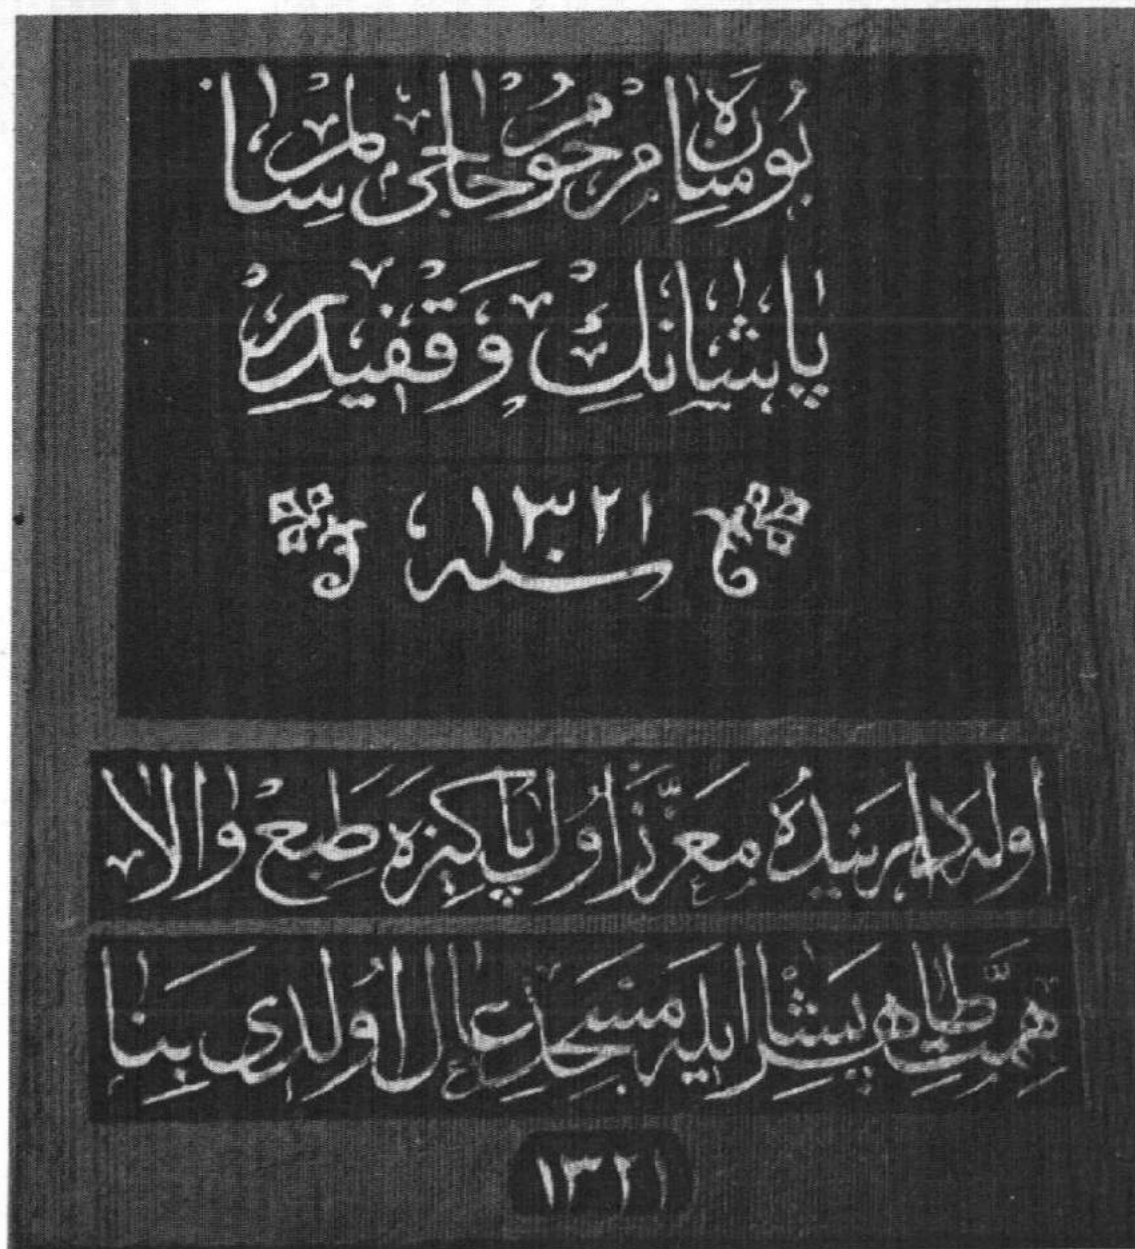 بو مناره مرحوم حاجى
پاشانك وقفيدر
سنه ١٣٢١
اوله دارينده معزز اول پاكيزه طبع والا
همت طاهر پشا ايله مسجد عال اولدى بنا
١٣٢١